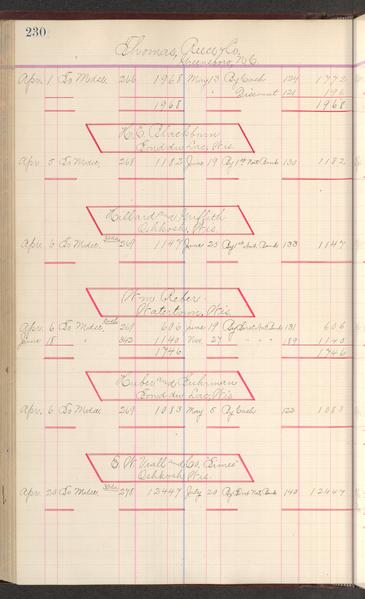 230
Thomas, Reece & Co.
Greensboro, N.C.
Apr. 1 To Mdse 266 1968 May 13 By Cash 124 1772
" Discount 121 196
1968 1968
H. E. Blackburn
Fond du Lac, Wis
Apr. 5 To Mdse. 268 1182 June 19 By 1st Nat. Bank 130 1182
Hillard and Griffith
Oshkosh, Wis.
Apr. 6 To Mdse. 269 1147 June 25 By 1st Nat. Bank 133 1147
Wm. Reber
Watertown, Wis.
Apr. 6 To Mdse. 269 606 June 19 By First Nat Bank 131 606
June 18 " " 342 1140 Nov. 27 " " " " 189 1140
1746 1746
Huber and Fuhrman
Fond du Lac, Wis
Apr. 6 To Mdse 269 1083 May 6 By Cash 122 1083
S. W. Viall and Co. "Times"
Oshkosh, Wis.
Apr. 20 To Mdse. 278 12447 July 20 By First Nat. Bank 140 12447